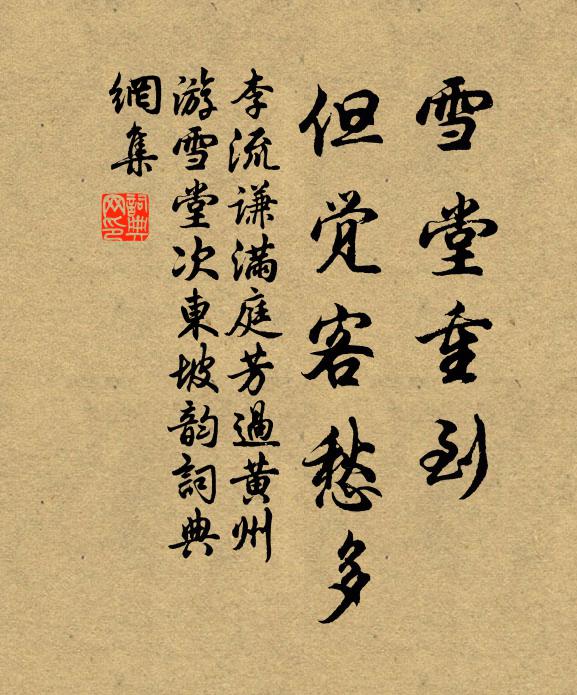 雪堂重到
但觉客愁多
李流谦满庭芳過黄州
游雪堂次東坡韵詞典
網集
詞典
网印